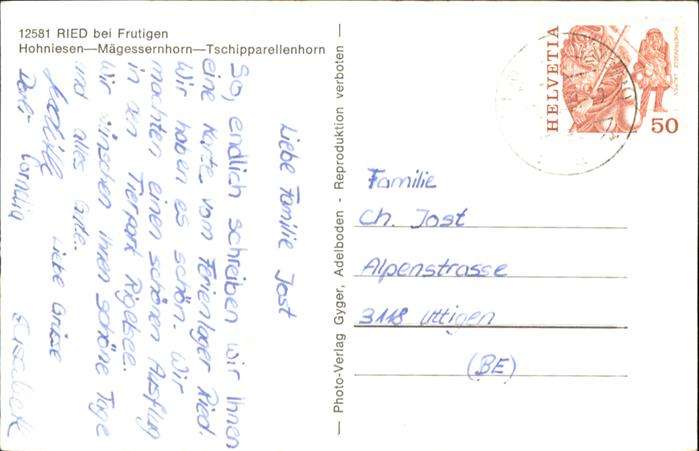 12581 RIED bei Frutigen
Hohniesen—Mägessernhorn—Tschipparellenhorn
Liebe Familie Jost
So, endlich schreiben wir Ihnen
eine Karte vom Ferienlager Ried.
Wir haben es schön. Wir
machten einen schönen Ausflug
in den Tierpark Rigelsee.
Wir wünschen Ihnen schöne Tage
und alles Gute.
Liebe Grüsse
Cornelia
Elisabeth
— Photo-Verlag Gyger, Adelboden - Reproduktion verboten —
HELVETIA
50
Familie
Ch. Jost
Alpenstrasse
3118 Uttigen
(BE)